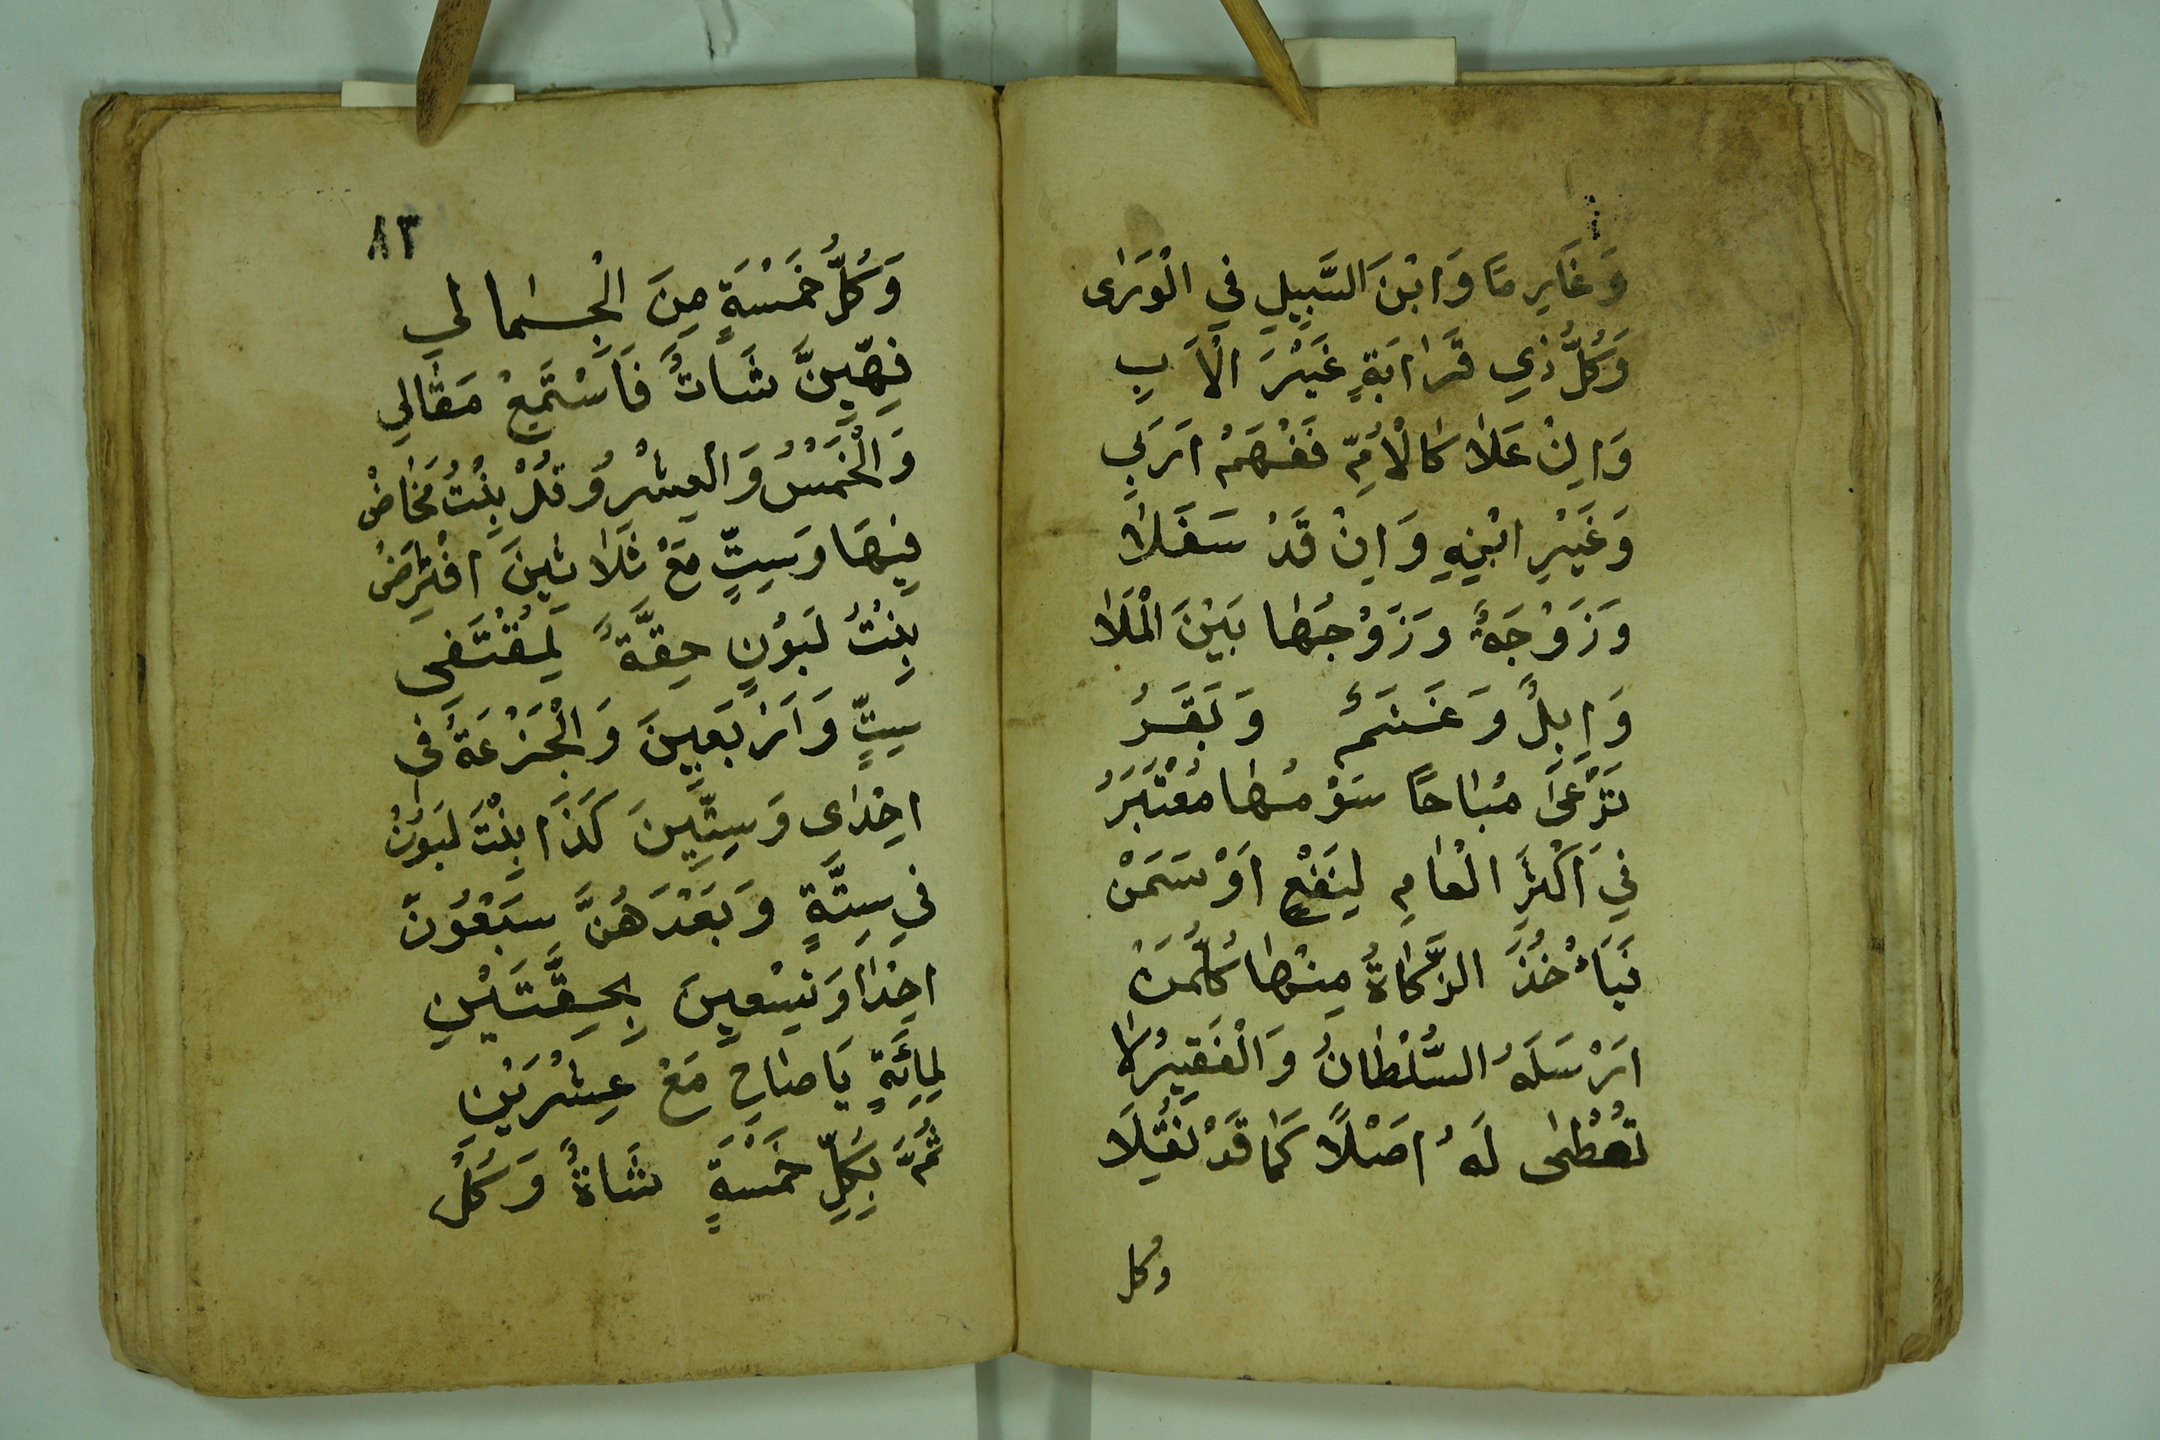 وَغَارِمًا وَابْنَ السَّبِيلِ فِي الْوَرٰى
وَكُلُّ ذِي قَرَابَةٍ غَيْرَ الْاَبِ
وَاِنْ عَلَا كَالْاُمِّ فَفْهَمْ اَرَبِي
وَغَيْرِ ابْنِهِ وَاِنْ قَدْ سَفَلَا
وَزَوْجَةٌ وَزَوْجُهَا بَيْنَ الْمَلَا
وَاِبِلٌ وَغَنَمٌ وَبَقَرُ
تَرْعَى مُبَاحًا سَوْمُهَا مُعْتَبَرُ
فِي اَكْثَرِ الْعَامِ لِنَفْعٍ اَوْ سَمَنْ
فَيَأْخُذُ الزَّكَاةَ مِنْهَا كُلُّمَنْ
اَرْسَلَهُ السُّلْطَانُ وَالْفَقِيرُ لَا
تُعْطٰى لَهُ اَصْلًا كَمَا قَدْ نُقِلَا
وكل
٨٣
وَكُلُّ خَمْسَةٍ مِنَ الْجِمَالِي
فَهِيَنَّ شَاتٌ فَاسْتَمِعْ مَقَالِي
وَالْخَمْسُ وَالْعِشْرُو قُلْ بِنْتُ مَخَاضْ
فِيهَا وَسِتٍّ مَعْ ثَلَاثِينَ افْتِرَضْ
بِنْتُ لَبُوْنٍ حِقَّةً لِمُقْتَفِي
سِتٍّ وَاَرْبَعِينَ وَالْجَزْعَةُ فِي
اِحْدٰى وَسِتِّينَ كَذَا بِنْتَ لَبُونْ
فِي سِتَّةٍ وَبَعْدَهُنَّ سَبْعُونَ
اِحْدَا وَتِسْعِينَ بِحِقَّتَيْنِ
لِمِائَةٍ يَا صَاحِ مَعْ عِشْرَيْنِ
ثُمَّ بِكُلِّ خَمْسَةٍ شَاةٌ وَكُلُّ